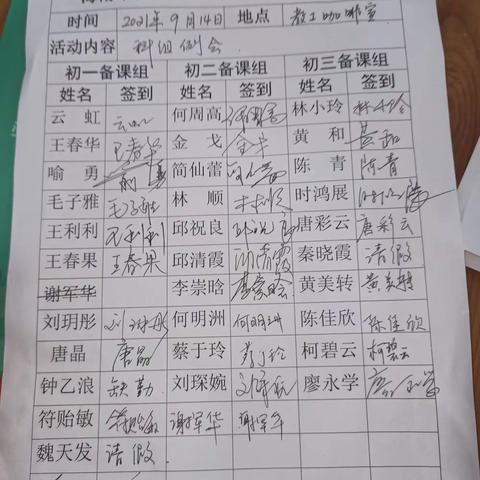 时间 2021年9月14日 地点 教工咖啡室
活动内容 科组例会
初一备课组 初二备课组 初三备课组
姓名 签到 姓名 签到 姓名 签到
云虹 云虹 何周高 何周高 林小玲 林小玲
王春华 王春华 金戈 金戈 黄和 黄和
喻勇 喻勇 简仙蕾 陈青 陈青
毛子雅 毛子雅 林顺 林顺 时鸿展
王利利 王利利 邱祝良 邱祝良 唐彩云 唐彩云
王春果 王春果 邱清霞 邱清霞 秦晓霞 请假
谢军华 李崇晗 李崇晗 黄美转 黄美转
刘玥彤 刘玥彤 何明洲 何明洲 陈佳欣 陈佳欣
唐晶 唐晶 蔡于玲 柯碧云 柯碧云
钟乙浪 缺勤 刘琛婉 廖永学
符贻敏 符贻敏 谢军华 谢军华
魏天发 请假